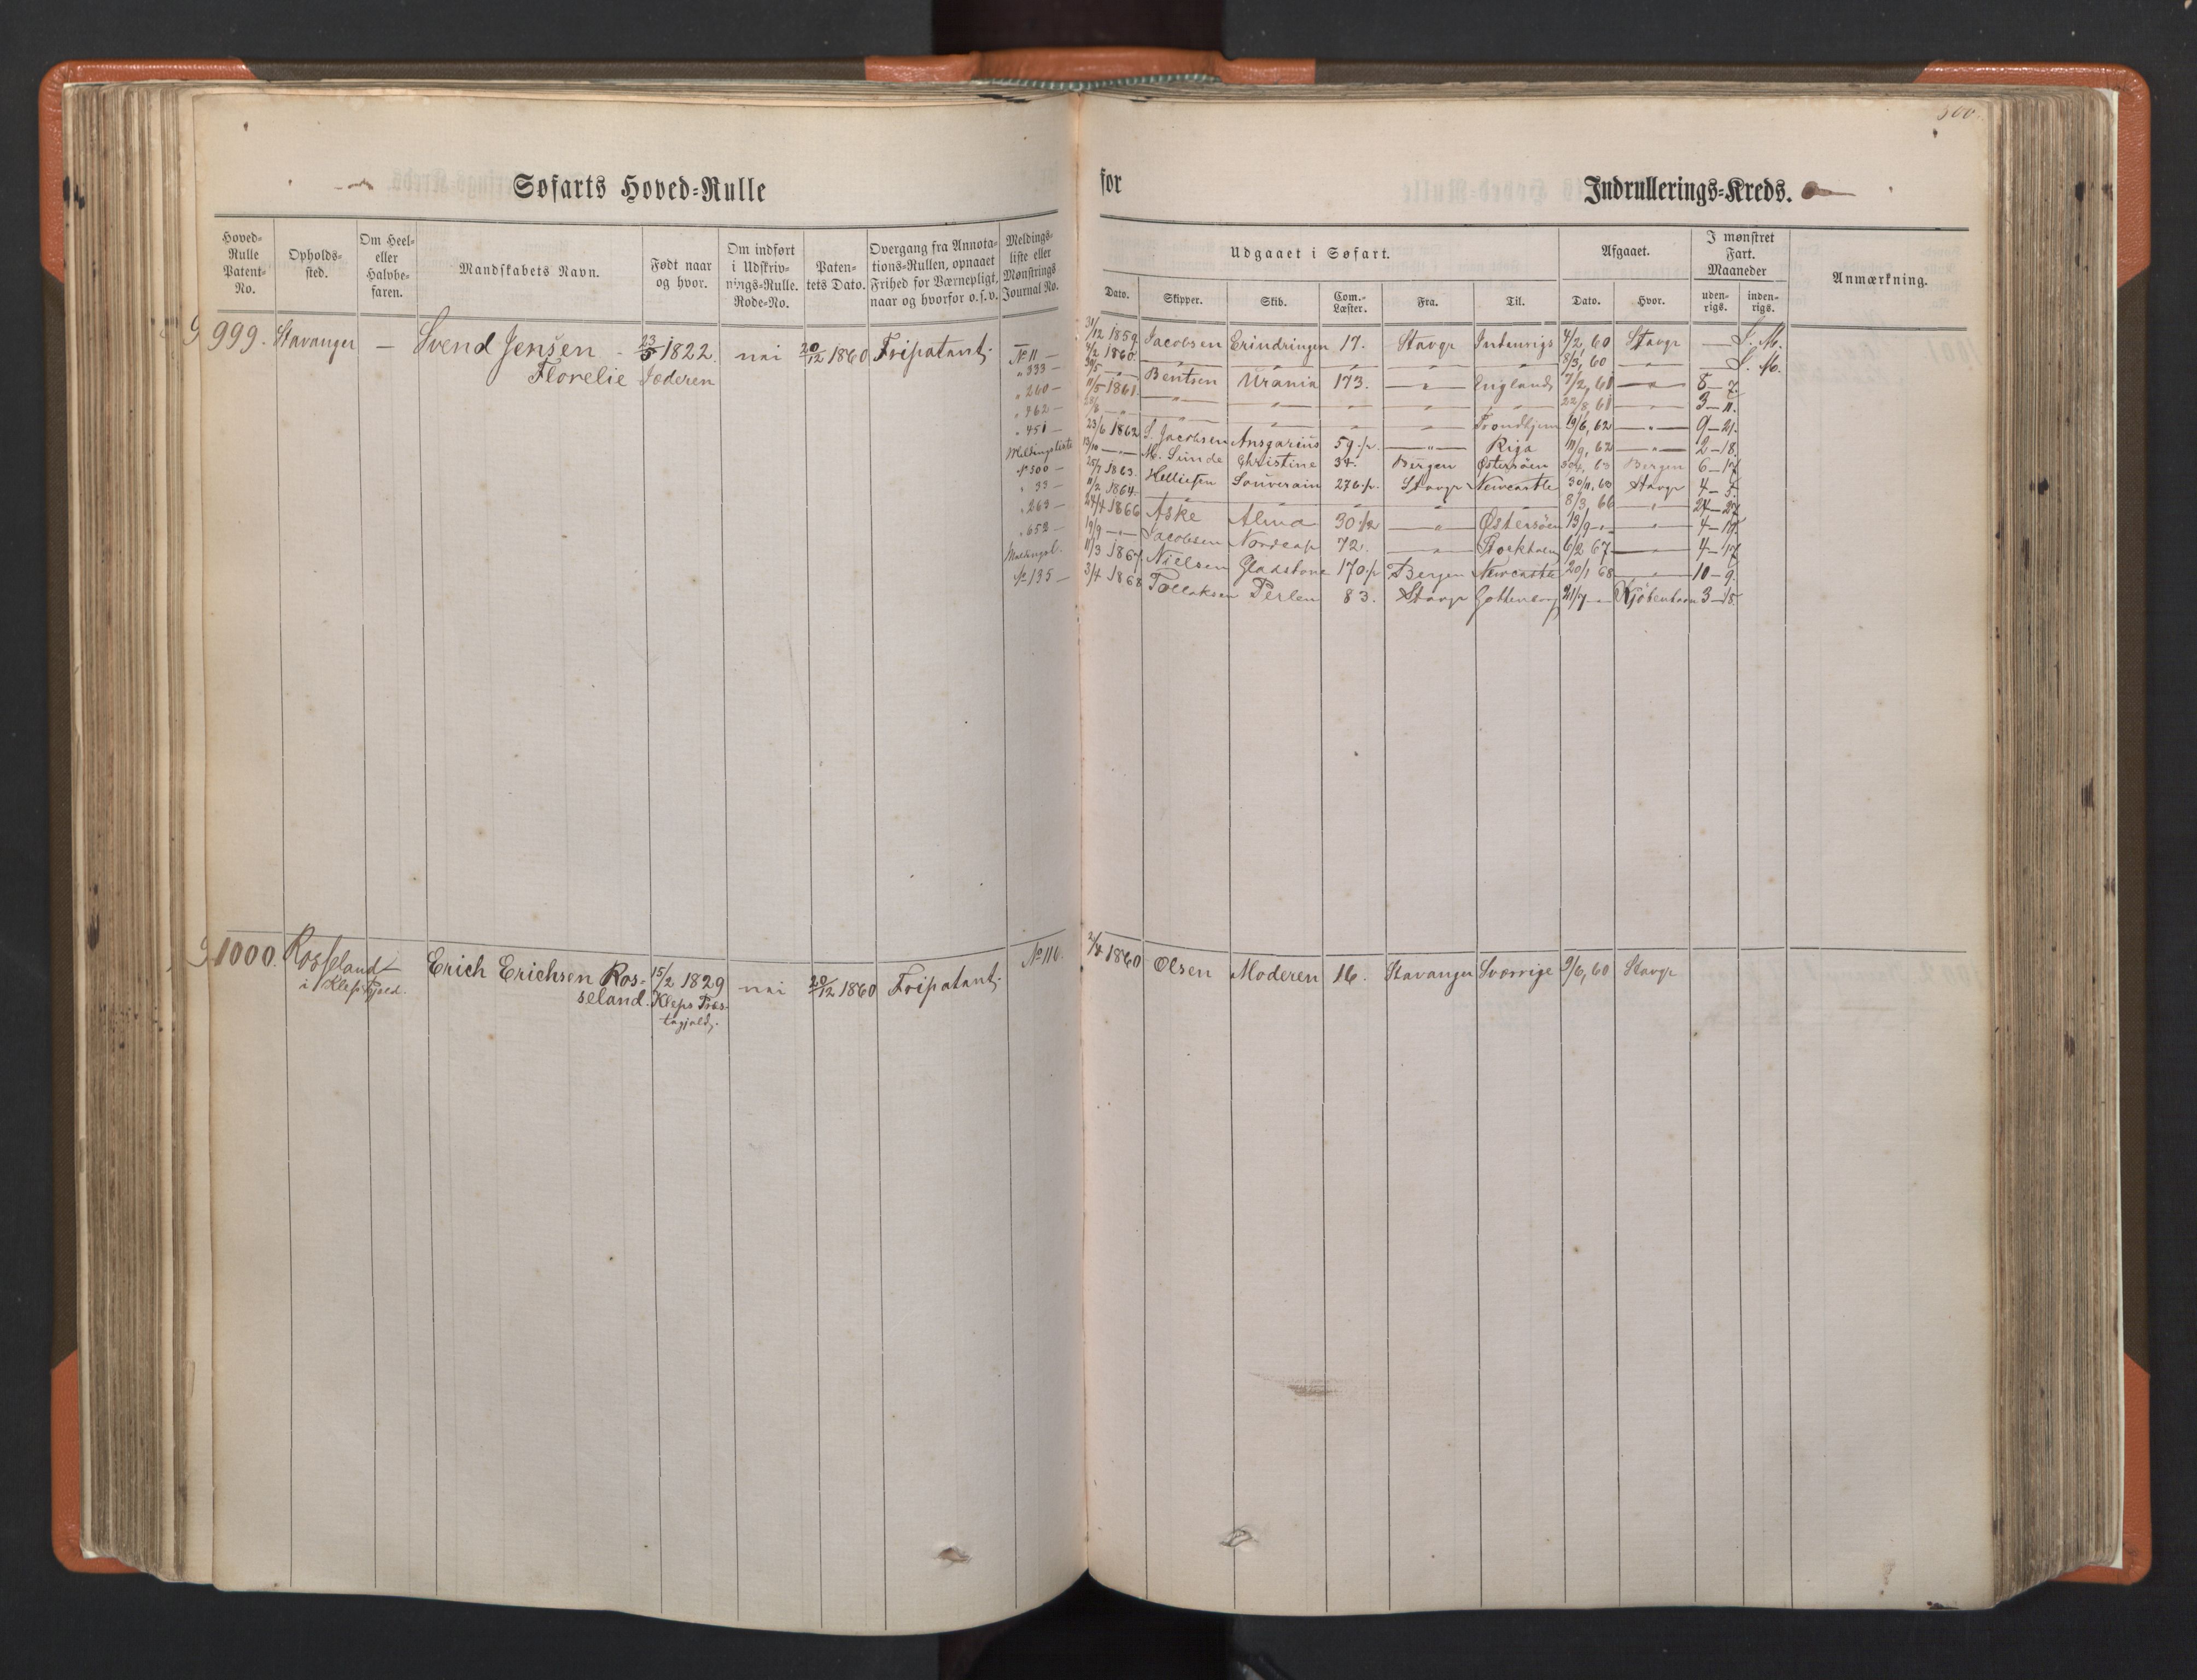 500.
Søfarts Hoved-Rulle for Indrullerings-Kreds.
Hoved-Rulle Patent-No.
Opholds-sted.
Om Heel- eller Halvbe-faren.
Mandskabets Navn.
Født naar og hvor.
Om indført i Udskriv-nings-Rulle. Rode-No.
Paten-tets Dato.
Overgang fra Annota-tions-Rullen, opnaaet Frihed for Værnepligt, naar og hvorfor o.s.v.
Meldings-liste eller Mønstrings Journal No.
Udgaaet i Søfart.
Dato. Skipper. Skib. Com.-Læster. Fra. Til.
Afgaaet.
Dato. Hvor.
I mønstret Fart. Maaneder
uden-rigs. inden-rigs.
Anmærkning.
999. Stavanger — Svend Jensen 23/5 1822. nei 20/12 1860 Fripatent.
Florelie Jæderen
— 31/12 1859 Jacobsen Erindringen 17. Stavgr Indenrigs 4/2, 60 Stavgr — S. M.
No 11 — 1860. — " — — " — — " — — " — " 8/3, 60 — " — — S. M.
" 333 — Bentsen Urania 173. — " — England 7/2, 61 — " — 8 — 7.
" 260 — 11/5 1861. — " — — " — — " — — " — — " — 22/8, 61 — " — 3 — 11.
" 462 — — " — — " — — " — — " — — " — Trondhjem 19/6, 62 — " — 9 — 21.
" 451 — 23/6 1862 S. Jacobsen Ansgarius 59 — " — Riga 11/9, 62 — " — 2 — 18.
Meldingsliste 13/10 — " — M. Sunde Christine 34. Bergen Østersøen 63 Bergen 6 — 17
No 300 — 25/7 1863. Helliesen Souverain 276 Stavgr Newcastle 30/11, 63 Stavgr 4 — 5.
" 33 — 11/2 1864. — " — — " — — " — — " — — " — 8/3, 66 — " — 24 — 27
" 263 — 24/4 1866 Aske Alma 30 1/2 — " — Østersøen 13/9 — " — — " — 4 — 19
" 652 — 19/9 — " — Jacobsen Nordcap 72. — " — Stockholm 6/2 67 — " — 4 — 17
Meldingsl. 11/3 1867 Nielsen Gladstone 170 Bergen Newcastle 20/1 68 — " — 10 — 9.
No 135 — 3/4 1868 Tollaksen Perlen 83. Stavgr Gottenborg 21/7 — Kjøbenhavn 3 — 18.
1000. Rosseland Erich Erichsen Ros- 15/2 1829 nei 20/12 1860 Fripatent. No 110. 2/4 1860 Olsen Moderen 16. Stavanger Sverrige 9/6, 60 Stavgr
i Kleps Pgjeld. seland. Kleps Præs-
tegjeld.